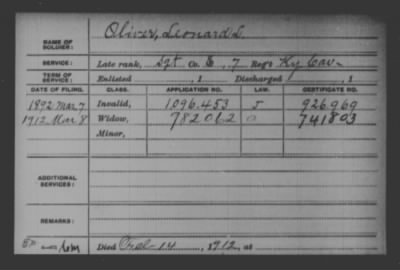 NAME OF SOLDIER: Oliver, Leonard L.
SERVICE: Late rank, Sgt Co. E, 7 Reg't Ky Cav.
TERM OF SERVICE: Enlisted , 1 Discharged , 1
DATE OF FILING. CLASS. APPLICATION NO. LAW. CERTIFICATE NO.
1892 Mar 7 Invalid, 1,096.453 J 926.969
1912 Mar 8 Widow, 782062 O 741803
Minor,
ADDITIONAL SERVICES:
REMARKS:
Died 14 , 1912, at